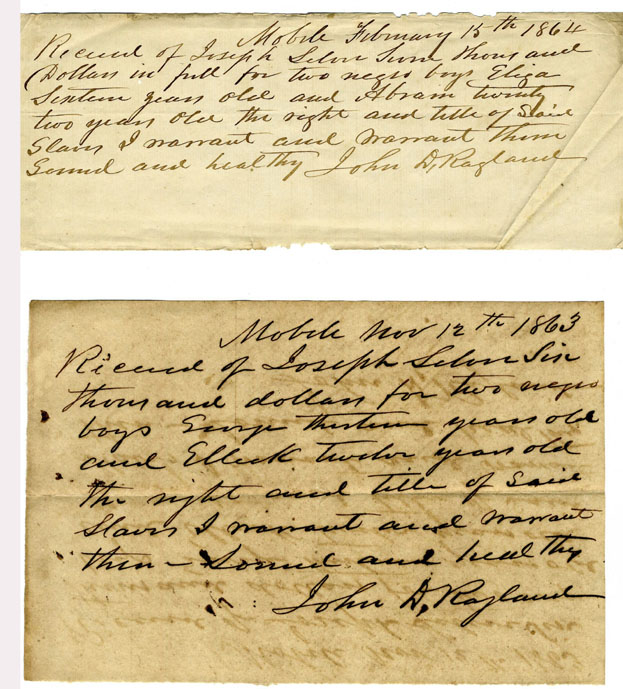 Mobile February 15th 1864
Recevd of Joseph Selvr thousand
Dollars in full for two negro boys Eliga
Sixteen years old and Abram twenty
two years old the right and title of said
Slaves I warrant and warrant them
Sound and healthy John D. Ragland
Mobile Nov 12th 1863
Recevd of Joseph Six
thousand dollars for two negro
boys George thirteen years old
and Elleck twelve years old
the right and title of said
Slaves I warrant and warrant
them Sound and healthy
John D. Ragland